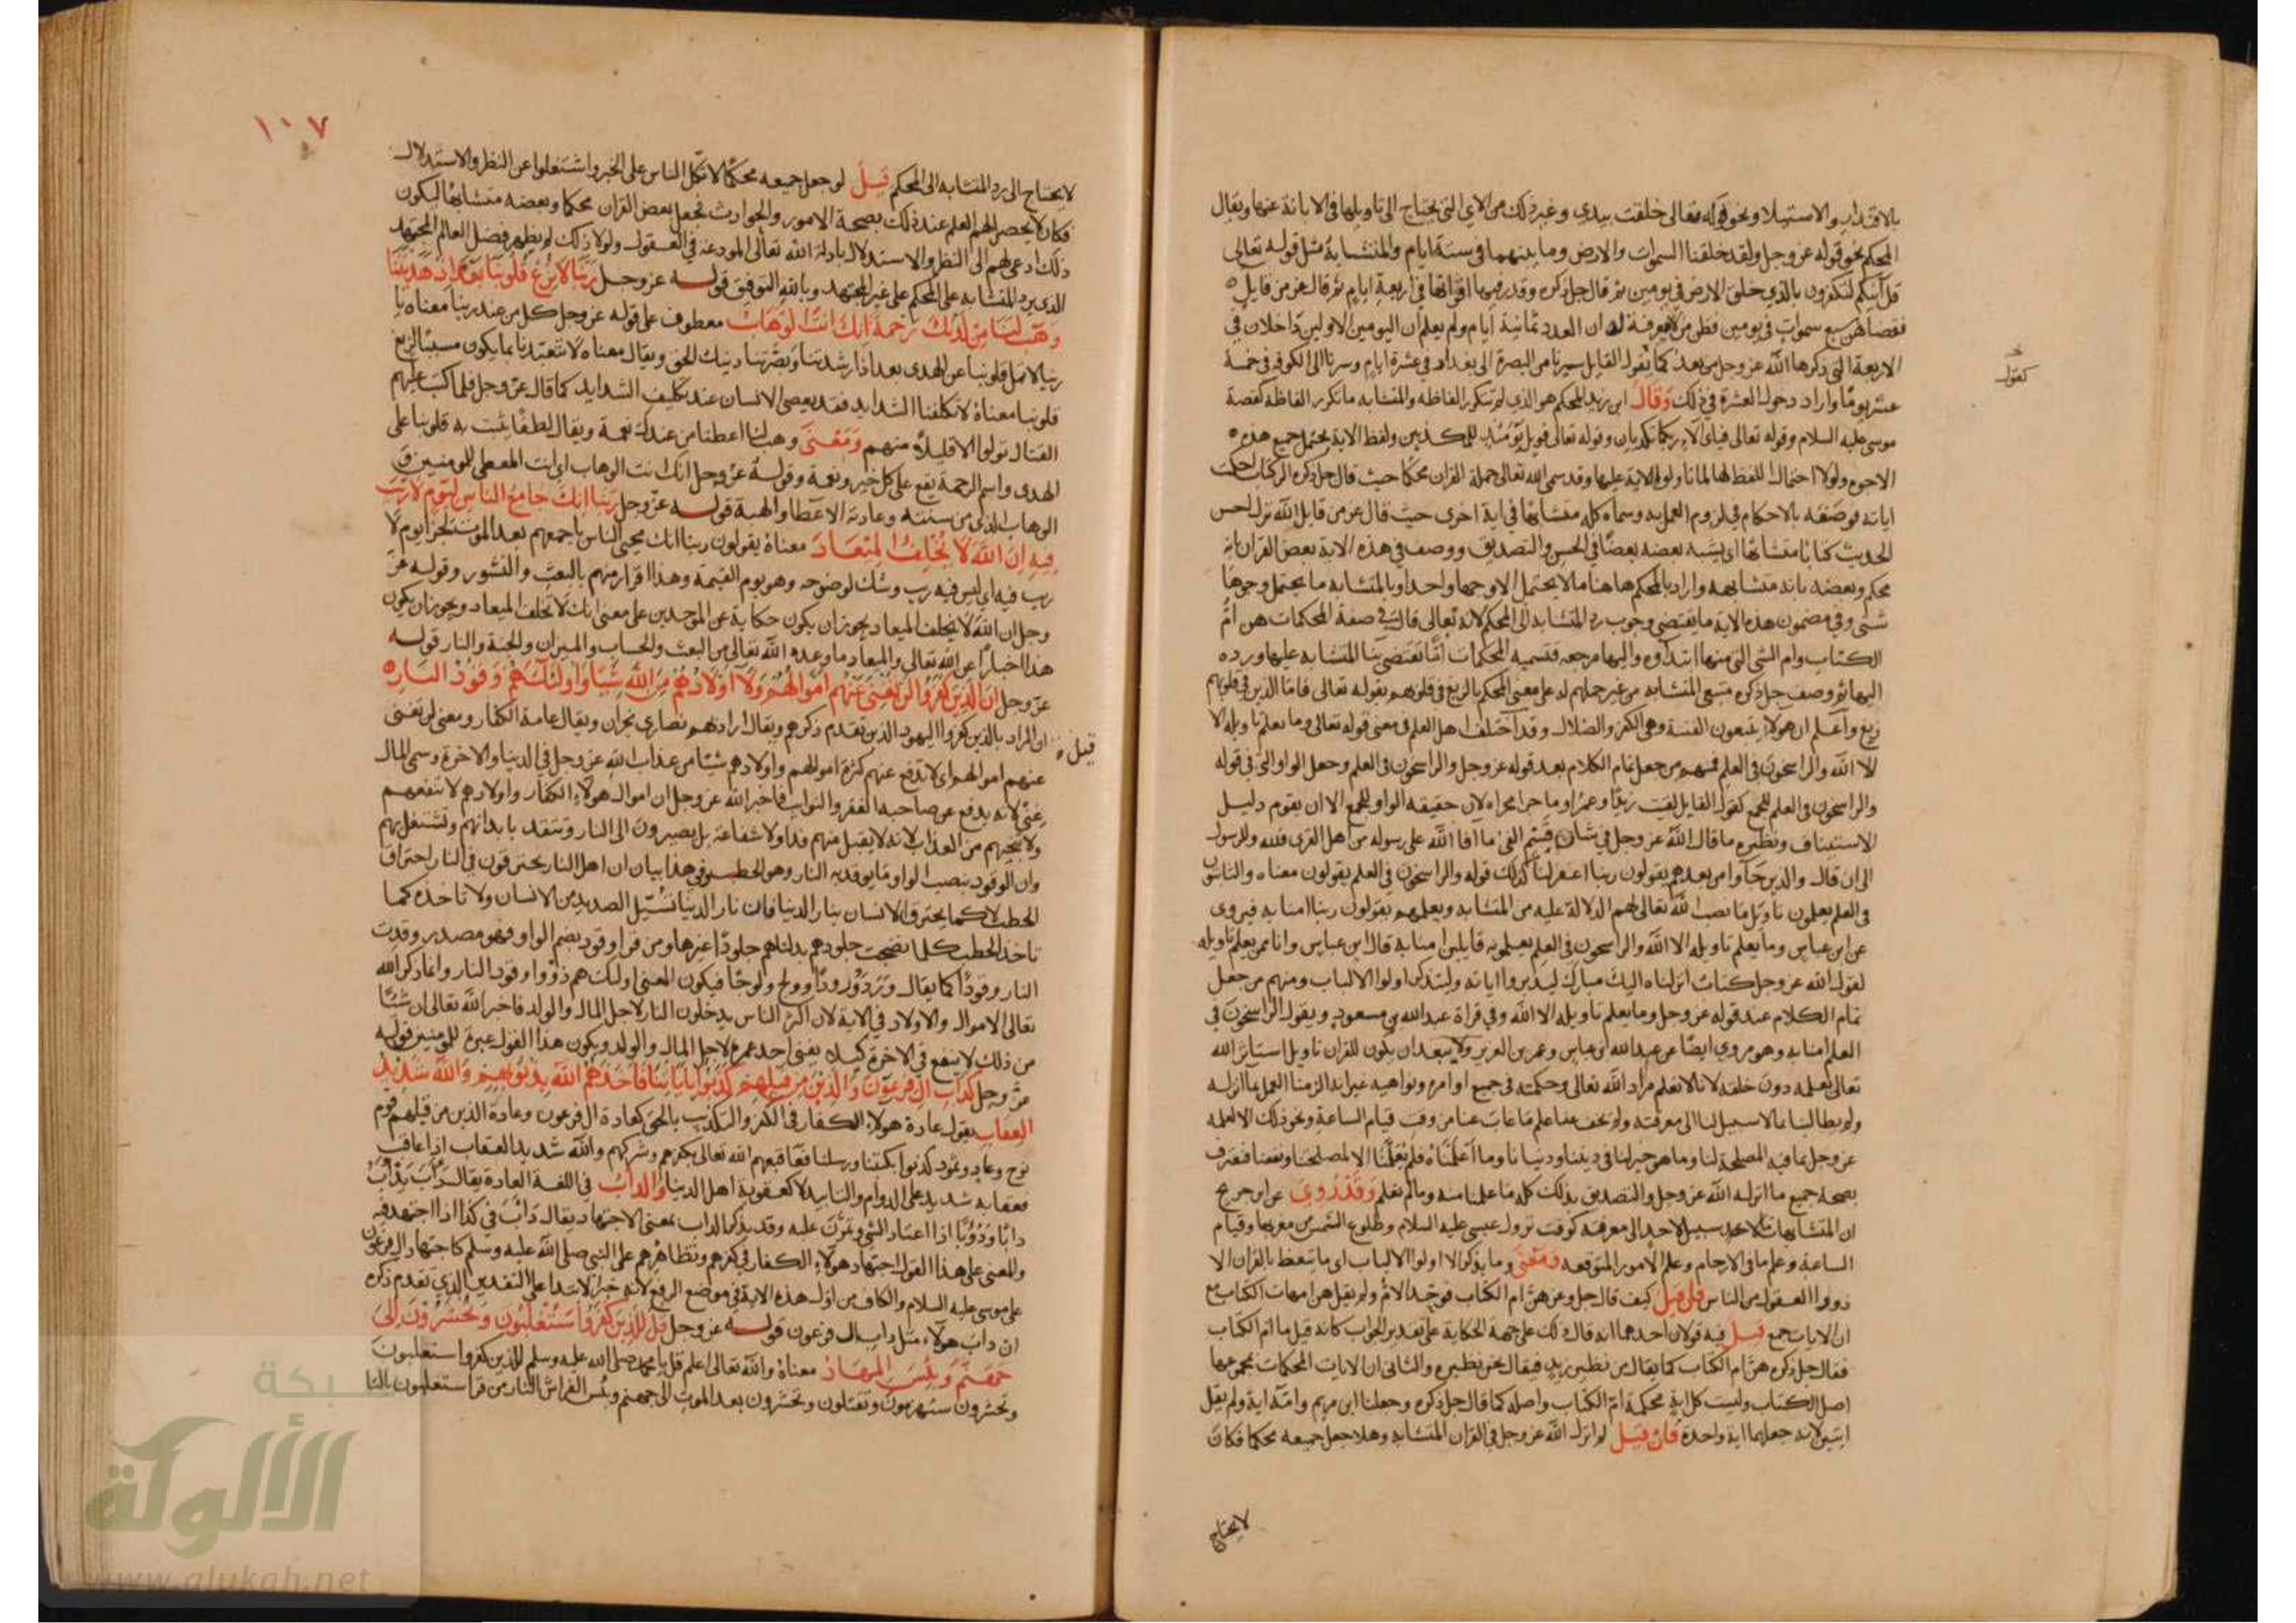 بالاقتدار والاستيلا ونحو قوله تعالى خلقت بيدي وغير ذلك من الاي التي يحتاج الى تاويلها في الابانة عنها ويقال
المحكم نحو قوله عز وجل ولقد خلقنا السموات والارض وما بينهما في ستة ايام والمتشابه مثل قوله تعالى
قل ائنكم لتكفرون بالذي خلق الارض في يومين ثم قال جل ذكره وقدر فيها اقواتها في اربعة ايام ثم قال عز من قايل
فقضاهن سبع سموات في يومين فظن من لا معرفة له ان العدد ثمانية ايام ولم يعلم ان اليومين الاولين داخلان في
الاربعة التي ذكرها الله عز وجل من بعد كما يقول القايل سرنا من البصرة الى بغداد في عشرة ايام وسرنا الى الكوفة في خمسة
كقول
عشر يوما واراد دخول العشرة في ذلك وقال ابن زيد المحكم هو الذي لم تتكرر الفاظه والمتشابه ما تكرر الفاظه كقصة
موسى عليه السلام وقوله تعالى فباي الاء ربكما تكذبان وقوله تعالى فويل يومئذ للمكذبين ولفظ الاية يحتمل جميع هذه
الاجوه ولولا احتمال اللفظ لها لما تاولوا الاية عليها وقد سمى الله تعالى جملة القران محكما حيث قال جل ذكره الر كتاب احكمت
اياته فوصفه بالاحكام في لزوم العمل به وسماه كله متشابها في اية اخرى حيث قال عز من قايل الله نزل احسن
الحديث كتابا متشابها اي يشبه بعضه بعضا في الحسن والتصديق ووصف في هذه الاية بعض القران بانه
محكم وبعضه بانه متشابه واراد بالمحكم هاهنا ما لا يحتمل الا وجها واحدا وبالمتشابه ما يحتمل وجوها
شتى وفي مضمون هذه الاية ما يقتضي وجوب رد المتشابه الى المحكم لانه تعالى قال في صفة المحكمات هن ام
الكتاب وام الشي التي منها ابتداوه واليها مرجعه فتسميه المحكمات اما تقتضي بنا المتشابه عليها ورده
اليها ثم وصف جل ذكره متبعي المتشابه من غير حملهم له على معنى المحكم بالزيغ في قلوبهم بقوله تعالى فاما الذين في قلوبهم
زيغ واعلم ان هولاء يتبعون الفتنة وهي الكفر والضلال وقد اختلف اهل العلم في معنى قوله تعالى وما يعلم تاويله الا
الا الله والراسخون في العلم فمنهم من جعل تمام الكلام بعد قوله عز وجل والراسخون في العلم وجعل الواو التي في قوله
والراسخون في العلم للجمع كقول القايل لقيت زيدا وعمرا وما جرا مجراه لان حقيقة الواو للجمع الا ان يقوم دليل
الاستيناف ونظيره ما قال الله عز وجل في شان قسم الفي ما افا الله على رسوله من اهل القرى فلله وللرسول
الى ان قال والذين جاوا من بعدهم يقولون ربنا اغفر لنا كذلك قوله والراسخون في العلم يقولون معناه والثابتون
في العلم يعلمون تاويل ما نصب الله تعالى لهم الدلالة عليه من المتشابه وبعلمهم يقولون ربنا امنا به فيروى
عن ابن عباس وما يعلم تاويله الا الله والراسخون في العلم يعلمونه قايلين امنا به قال ابن عباس وانا ممن يعلم تاويله
لقول الله عز وجل كتاب انزلناه اليك مبارك ليدبروا اياته وليتذكر اولوا الالباب ومنهم من جعل
تمام الكلام عند قوله عز وجل وما يعلم تاويله الا الله وفي قراة عبدالله بن مسعود ويقول الراسخون في
العلم امنا به وهو مروي ايضا عن عبدالله ابن عباس وعمر بن العزيز ولا يبعد ان يكون للقران تاويل استاثر الله
تعالى بعلمه دون خلقه لانا لا نعلم مراد الله تعالى وحكمته في جميع اوامره ونواهيه غير انه الزمنا العمل بما انزله
ولم يطالبنا بما لا سبيل لنا الى معرفته ولم يخف عنا علم ما غاب عنا من وقت قيام الساعة ونحو ذلك الا لعلمه
عز وجل بما فيه المصلحة لنا وما هو خير لنا في ديننا ودنيانا وما اعلمناه فلم يعلمنا الا لمصلحتنا ونفعنا فنعترف
بصحة جميع ما انزله الله عز وجل والتصديق بذلك كله ما علمنا منه وما لم نعلم وقد روي عن ابن جريج
ان المتشابهات لا سبيل لاحد الى معرفته كوقت نزول عيسى عليه السلام وطلوع الشمس من مغربها وقيام
الساعة وعلم ما في الارحام وعلم الامور المتوقعة ومعنى وما يذكر الا اولوا الالباب اي ما يتعظ بالقران الا
ذووا العقول من الناس فان قيل كيف قال جل وعز هن ام الكتاب فوحد الام ولم يقل هن امهات الكتاب مع
ان الايات جمع قيل فيه قولان احدهما انه قال ذلك على جهة الحكاية على تقدير الجواب كانه قيل ما ام الكتاب
فقال جل ذكره هن ام الكتاب كما يقال من نظير زيد فيقال نحن نظيره والثاني ان الايات المحكمات مجموعها
اصل الكتاب وليست كل اية محكمة ام الكتاب واصله كما قال جل ذكره وجعلنا ابن مريم وامه اية ولم يقل
ايتين لانه جعلهما اية واحدة فان قيل لم انزل الله عز وجل في القران المتشابه وهلا جعل جميعه محكما فكان
لا يحتاج
١٠٧
لا يحتاج الى رد المتشابه الى المحكم قيل لو جعل جميعه محكما لاتكل الناس على الخبر واشتغلوا عن النظر والاستدلال
فكان لا يحصل لهم العلم عند ذلك بصحة الامور والحوادث فجعل بعض القران محكما وبعضه متشابها ليكون
ذلك ادعى لهم الى النظر والاستدلال بادلة الله تعالى المودعة في العقول ولولا ذلك لم يظهر فضل العالم المجتهد
الذي يرد المتشابه على المحكم على غير المجتهد وبالله التوفيق قوله عز وجل ربنا لا تزغ قلوبنا بعد اذ هديتنا
وهب لنا من لدنك رحمة انك انت الوهاب معطوف على قوله عز وجل كل من عند ربنا معناه يا
ربنا لا تمل قلوبنا عن الهدى بعد اذ ارشدتنا وبصرتنا دينك الحق ويقال معناه لا تتعبدنا بما يكون مسببا لزيغ
قلوبنا معناه لا تكلفنا الشدايد فقد يعصي الانسان عند تكليف الشدايد كما قال عز وجل فلما كتب عليهم
القتال تولوا الا قليلا منهم ومعنى وهب لنا اعطنا من عندك نعمة ويقال لطفا تثبت به قلوبنا على
الهدى واسم الرحمة يقع على كل خير ونعمة وقوله عز وجل انك انت الوهاب اي انت المعطي للمومنين و
الوهاب الذي من سنته وعادته الاعطا والهبة قوله عز وجل ربنا انك جامع الناس ليوم لا ريب
فيه ان الله لا يخلف الميعاد معناه يقولون ربنا انك تحيي الناس باجمعهم بعد الموت لجزا يوم لا
ريب فيه اي ليس فيه ريب وشك لوضوحه وهو يوم القيمة وهذا اقرار منهم بالبعث والنشور وقوله عز
وجل ان الله لا يخلف الميعاد يجوز ان يكون حكاية عن الموحدين على معنى انك لا تخلف الميعاد ويجوز ان يكون
هذا اخبارا عن الله تعالى والميعاد ما وعده الله تعالى من البعث والحساب والميزان والجنة والنار قوله
عز وجل ان الذين كفروا لن تغني عنهم اموالهم ولا اولادهم من الله شيئا واولئك هم وقود النار
قيل ان المراد بالذين كفروا اليهود الذين تقدم ذكرهم ويقال اراد بهم نصارى نجران ويقال عامة الكفار ومعنى لن تغني
عنهم اموالهم اي لا تدفع عنهم كثرة اموالهم واولادهم شيئا من عذاب الله عز وجل في الدنيا والاخرة وسمي المال
غنى لانه يدفع عن صاحبه الفقر والنوايب فاخبر الله عز وجل ان اموال هولاء الكفار واولادهم لا تنفعهم
ولا تنجيهم من العذاب لانه لا يقبل منهم فدا ولا شفاعة بل يصيرون الى النار وتتقد بابدانهم وتشتعل بهم
وان الوقود بنصب الواو ما يوقد به النار وهو الحطب وفي هذا بيان ان اهل النار يحترقون في النار احتراق
الحطب لا كما يحترق الانسان بنار الدنيا فان نار الدنيا تسيل الصديد من الانسان ولا تاخذه كما
تاخذ الحطب كلما نضجت جلودهم بدلناهم جلودا غيرها ومن قرا وقود بضم الواو فهو مصدر وقدت
النار وقودا كما يقال ورد ورودا وولج ولوجا فيكون المعنى اولئك هم ذووا وقود النار وانما ذكر الله
تعالى الاموال والاولاد في الاية لان اكثر الناس يدخلون النار لاجل المال والولد فاخبر الله تعالى ان شيئا
من ذلك لا ينفع في الاخرة كيلا يفني احد عمره لاجل المال والولد ويكون هذا القول عبرة للمومنين قوله
عز وجل كداب ال فرعون والذين من قبلهم كذبوا باياتنا فاخذهم الله بذنوبهم والله شديد
العقاب يقول عادة هولاء الكفار في الكفر والتكذيب بالحق كعادة ال فرعون وعادة الذين من قبلهم قوم
نوح وعاد وثمود كذبوا بكتبنا ورسلنا فعاقبهم الله تعالى بكفرهم وشركهم والله شديد العقاب اذا عاقب
فعقابه شديد على الدوام والتابيد لا كعقوبة اهل الدنيا والداب في اللغة العادة يقال داب يداب
دابا ودؤوبا اذا اعتاد الشي وتمرن عليه وقد يذكر الداب بمعنى الاجتهاد يقال داب في كذا اذا اجتهد فيه
والمعنى على هذا القول اجتهاد هولاء الكفار في كفرهم وتظاهرهم على النبي صلى الله عليه وسلم كاجتهاد ال فرعون
على موسى عليه السلام والكاف من اول هذه الاية في موضع الرفع لانه خبر الابتدا على التقدير الذي تقدم ذكره
ان داب هولاء مثل داب ال فرعون قوله عز وجل قل للذين كفروا ستغلبون وتحشرون الى
جهنم وبئس المهاد معناه والله تعالى اعلم قل يا محمد صلى الله عليه وسلم للذين كفروا ستغلبون
وتحشرون ستهزمون وتقتلون وتحشرون بعد الموت الى جهنم وبئس الفراش النار من قرا ستغلبون بالتا
شبكة
الألوكة
www.alukah.net